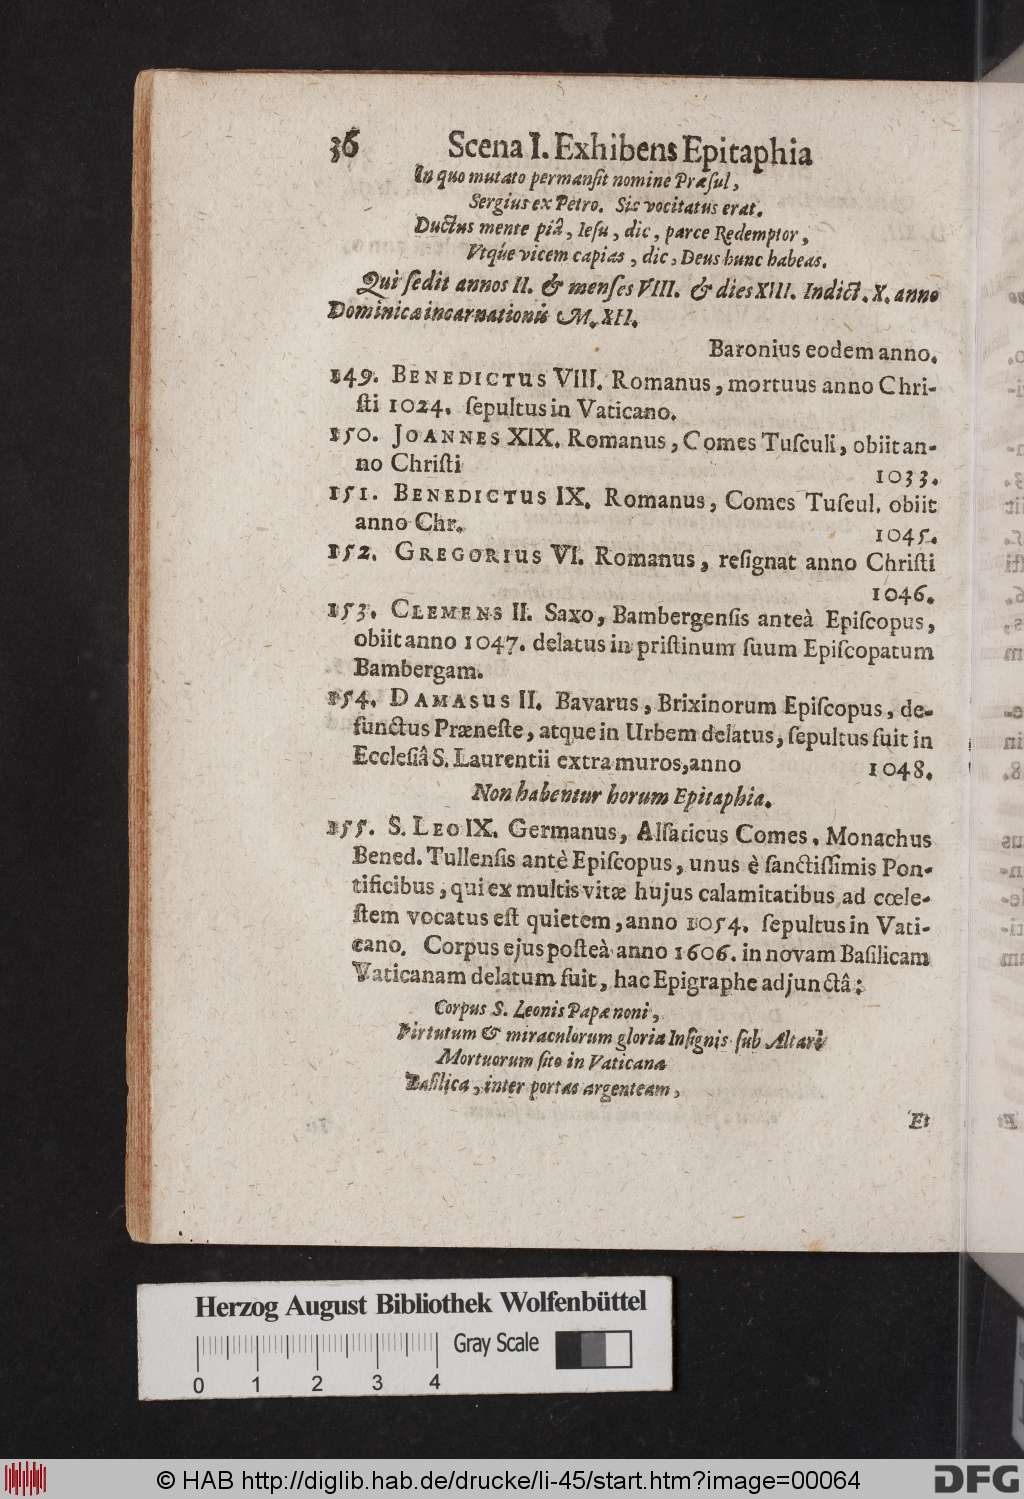 36 Scena I. Exhibens Epitaphia
In quo mutato permanſit nomine Præſul,
Sergius ex Petro. Sic vocitatus erat.
Ductus mente piâ, Ieſu, dic, parce Redemptor,
Utque vicem capias, dic, Deus hunc habeas.
Qui ſedit annos II. & menſes VIII. & dies XIII. Indict. X. anno
Dominicæ incarnationis M. XII.
Baronius eodem anno.
149. BENEDICTUS VIII. Romanus, mortuus anno Chri-
ſti 1024. ſepultus in Vaticano.
150. JOANNES XIX. Romanus, Comes Tuſculi, obiit an-
no Chriſti 1033.
151. BENEDICTUS IX. Romanus, Comes Tuſcul. obiit
anno Chr. 1045.
152. GREGORIUS VI. Romanus, reſignat anno Chriſti
1046.
153. CLEMENS II. Saxo, Bambergenſis anteà Epiſcopus,
obiit anno 1047. delatus in priſtinum ſuum Epiſcopatum
Bambergam.
154. DAMASUS II. Bavarus, Brixinorum Epiſcopus, de-
functus Præneſte, atque in Urbem delatus, ſepultus fuit in
Eccleſiâ S. Laurentii extra muros, anno 1048.
Non habentur horum Epitaphia.
155. S. LEO IX. Germanus, Alſaticus Comes, Monachus
Bened. Tullenſis antè Epiſcopus, unus è ſanctiſſimis Pon-
tificibus, qui ex multis vitæ hujus calamitatibus ad cœle-
ſtem vocatus eſt quietem, anno 1054. ſepultus in Vati-
cano. Corpus ejus poſteà anno 1606. in novam Baſilicam
Vaticanam delatum fuit, hac Epigraphe adjunctâ:
Corpus S. Leonis Papæ noni,
Virtutum & miraculorum gloria Inſignis ſub Altari
Mortuorum ſito in Vaticana
Baſilica, inter portas argenteam,
Et
Herzog August Bibliothek Wolfenbüttel
Gray Scale
0 1 2 3 4
© HAB http://diglib.hab.de/drucke/li-45/start.htm?image=00064
DFG